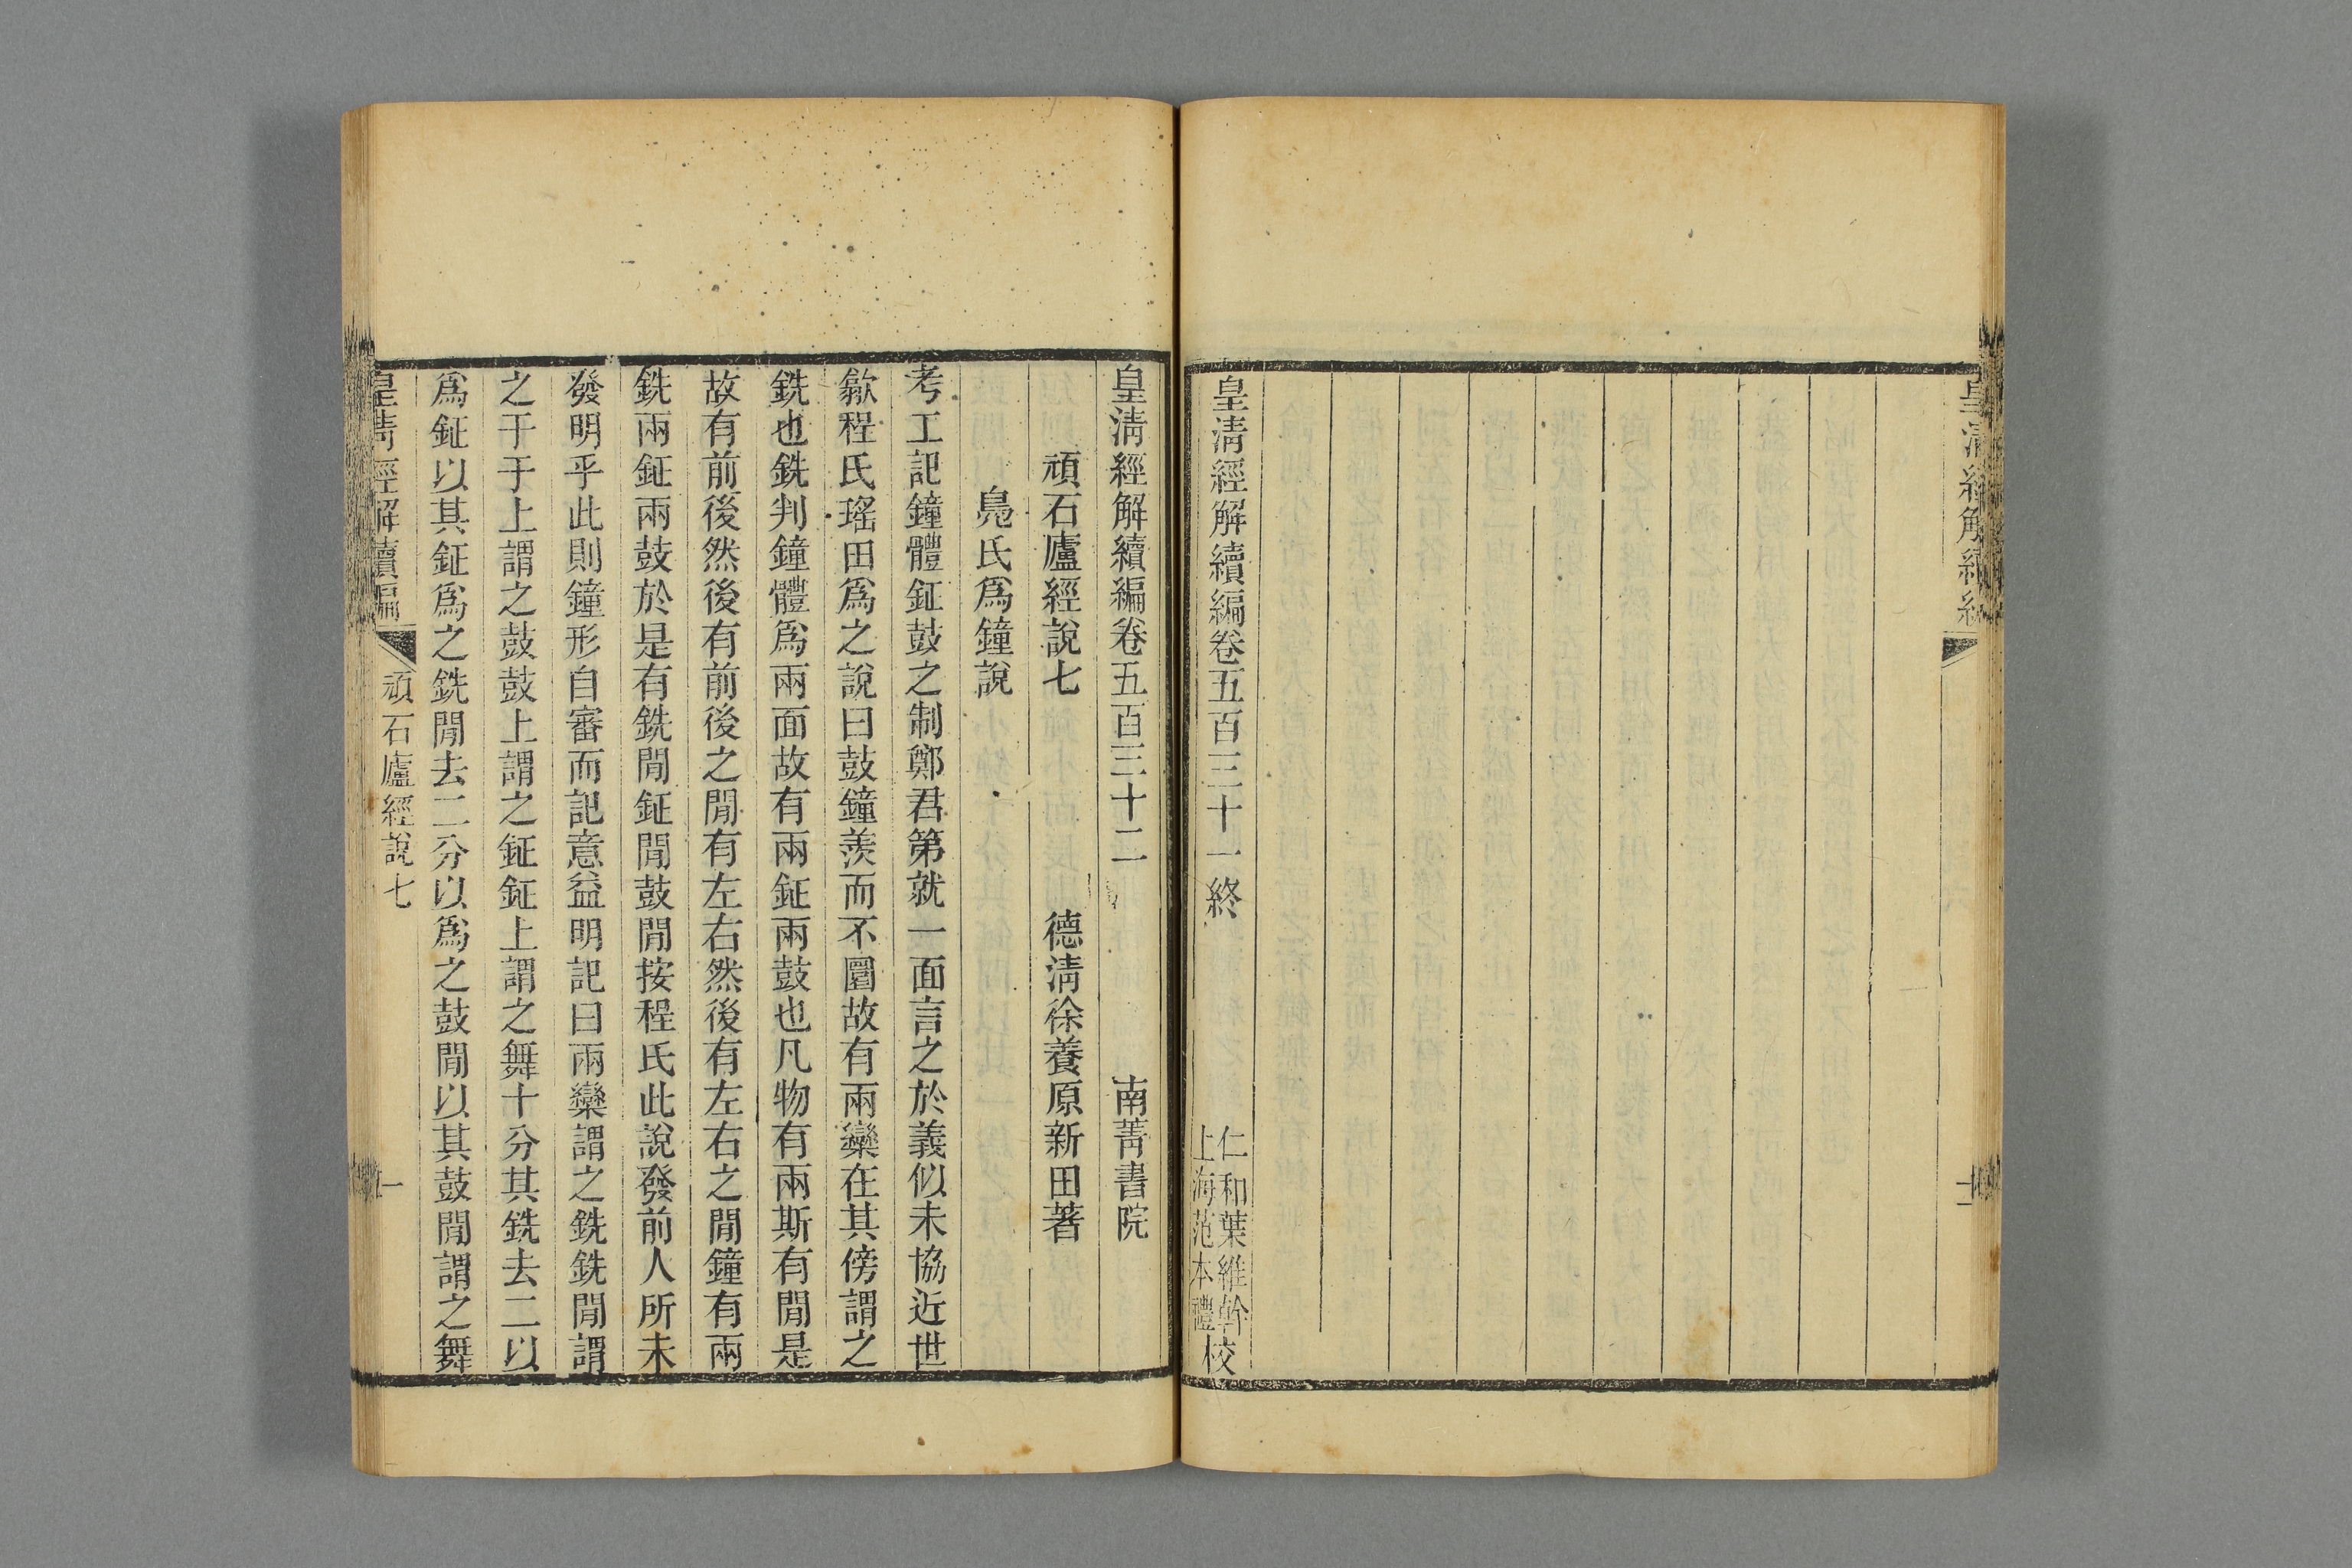 皇清經解續編卷五百三十一終
仁和葉維幹
上海范本禮
校
皇清經解續編卷五百三十二
南菁書院
頑石廬經說七
德清徐養原新田著
鳧氏爲鐘說
考工記鐘體鉦鼓之制鄭君第就一面言之於義似未協近世
歙程氏瑤田爲之說曰鼓鐘羨而不圜故有兩欒在其傍謂之
銑也銑判鐘體爲兩面故有兩鉦兩鼓也凡物有兩斯有閒是
故有前後然後有前後之閒有左右然後有左右之閒鐘有兩
銑兩鉦兩鼓於是有銑閒鉦閒鼓閒按程氏此說發前人所未
發明乎此則鐘形自審而記意益明記曰兩欒謂之銑銑閒謂
之于于上謂之鼓鼓上謂之鉦鉦上謂之舞十分其銑去二以
爲鉦以其鉦爲之銑閒去二分以爲之鼓閒以其鼓閒謂之舞
皇清經解續編
頑石廬經說七
一